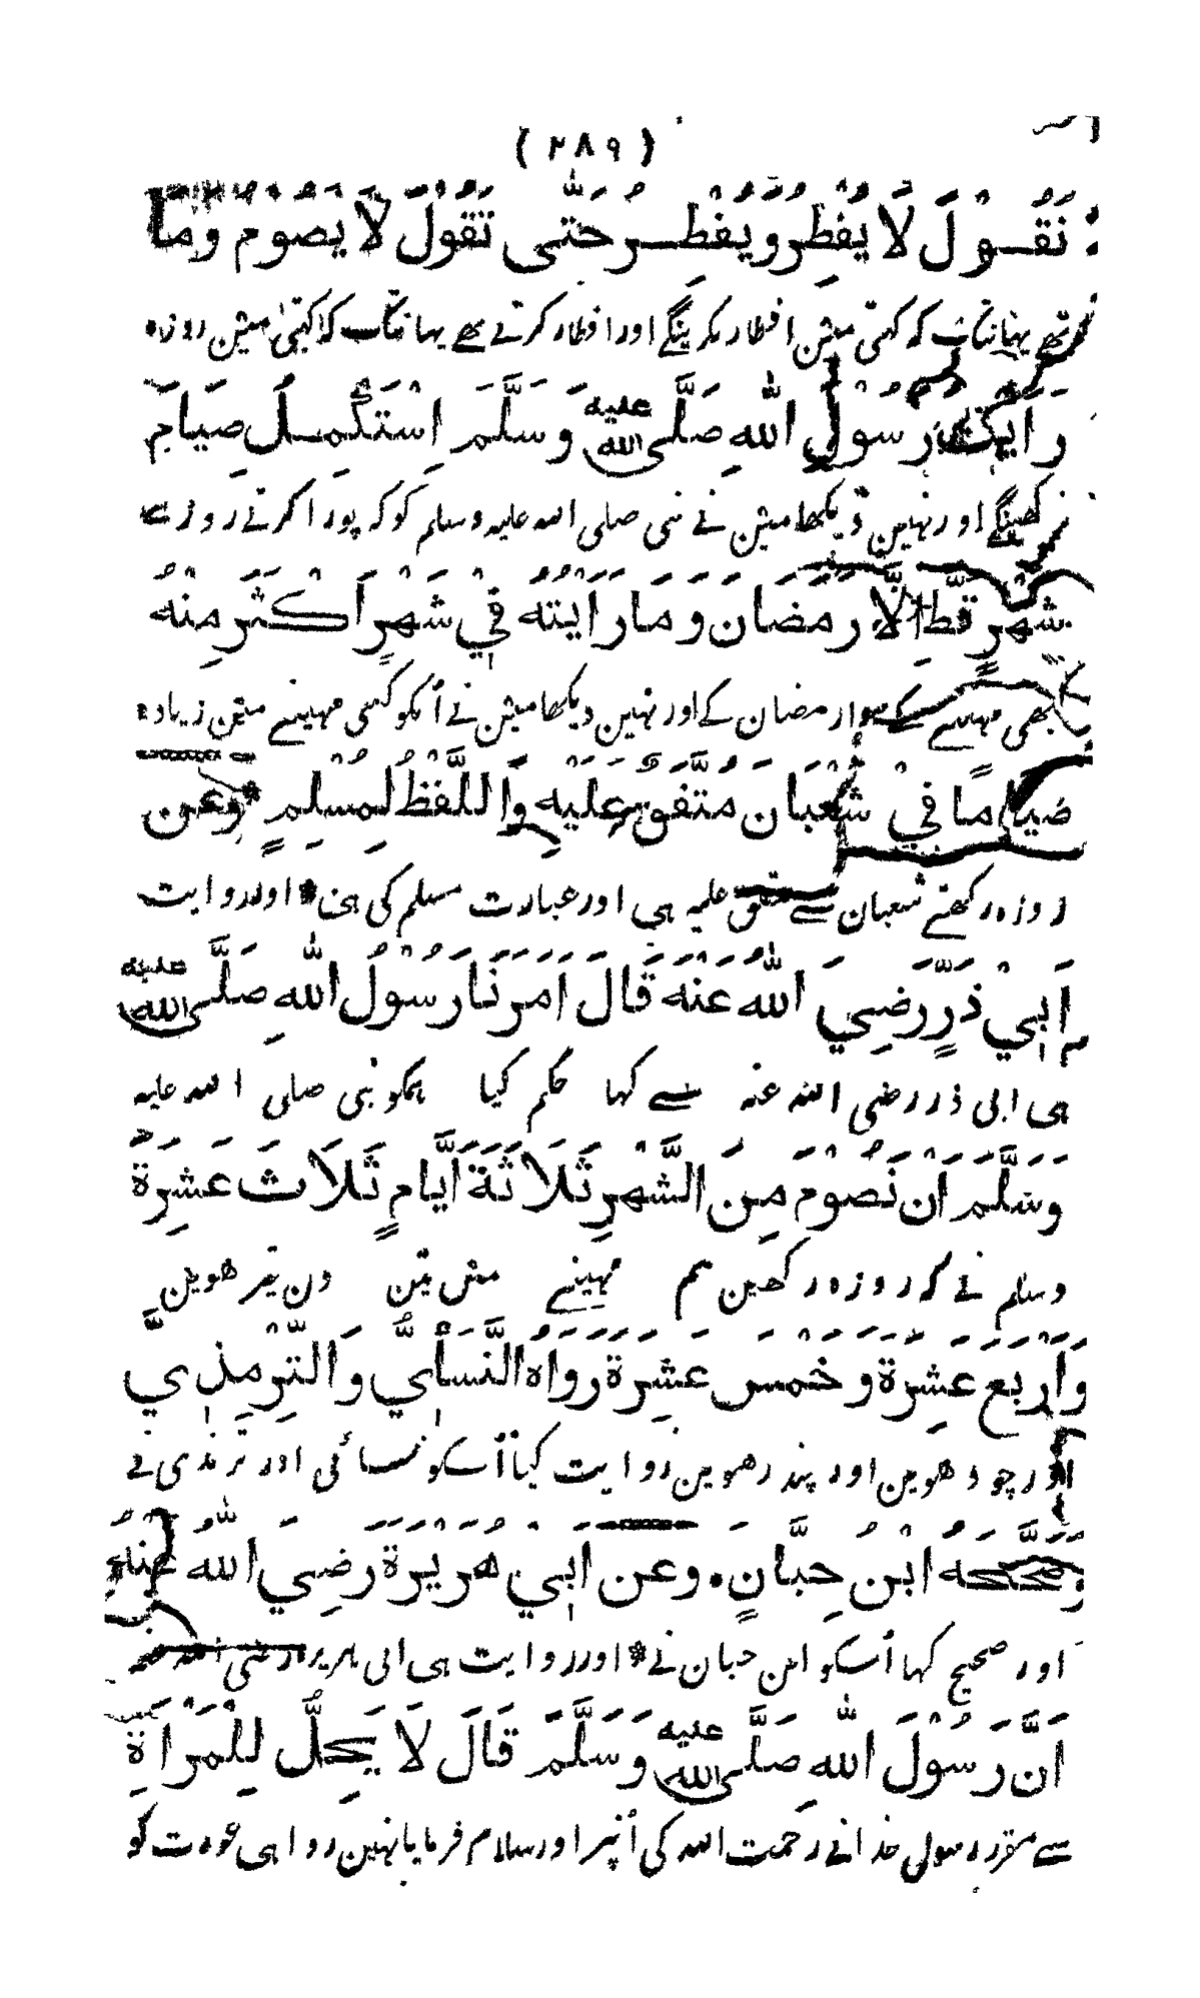 ( ٢٨٩ )
نَقُوْلَ لَا يُفْطِرُ وَيُفْطِرُ حَتّٰى نَقُوْلَ لَا يَصُوْمُ وَمَا
تھے یہانتک کہ کہتے ہین افطار نکرینگے اور افطار کرتے تھے یہانتک کہ کہتے ہین روزہ
رَاَيْتُ رَسُوْلَ اللّٰهِ صَلَّى اللّٰهُ عَلَيْهِ وَسَلَّمَ اِسْتَكْمَلَ صِيَامَ
نرکھینگے اور نہین دیکھا مین نے نبی صلی اللہ علیہ وسلم کو کہ پورا کرتے روزے
شَهْرٍ قَطُّ اِلَّا رَمَضَانَ وَمَا رَاَيْتُهُ فِيْ شَهْرٍ اَكْثَرَ مِنْهُ
کبھی مہینے کے سوا رمضان کے اور نہین دیکھا مین نے اُنکو کسی مہینے مین زیادہ
صِيَامًا فِيْ شَعْبَانَ مُتَّفَقٌ عَلَيْهِ وَاللَّفْظُ لِمُسْلِمٍ * وَعَن
روزہ رکھتے شعبان سے متفق علیہ ہی اور عبارت مسلم کی ہی * اور روایت
اَبِيْ ذَرٍّ رَضِيَ اللّٰهُ عَنْهُ قَالَ اَمَرَنَا رَسُوْلُ اللّٰهِ صَلَّى اللّٰهُ عَلَيْهِ
ہی ابی ذر رضی اللہ عنہ سے کہا حکم کیا ہمکو نبی صلی اللہ علیہ
وَسَلَّمَ اَنْ نَصُوْمَ مِنَ الشَّهْرِ ثَلَاثَةَ اَيَّامٍ ثَلَاثَ عَشِرَةَ
وسلم نے کہ روزہ رکھین ہم مہینے مین تین دن تیرھوین
وَاَرْبَعَ عَشِرَةَ وَخَمْسَ عَشِرَةَ رَوَاهُ النَّسَائِيُّ وَالتِّرْمِذِيُّ
اور چودھوین اور پندرھوین روایت کیا اُسکو نسائی اور ترمذی نے
وَصَحَّحَهُ ابْنُ حِبَّانٍ. وَعَن اَبِيْ هُرَيْرَةَ رَضِيَ اللّٰهُ عَنْهُ
اور صحیح کہا اُسکو ابن حبان نے * اور روایت ہی ابی ہریرہ رضی اللہ عنہ
اَنَّ رَسُوْلَ اللّٰهِ صَلَّى اللّٰهُ عَلَيْهِ وَسَلَّمَ قَالَ لَا يَحِلُّ لِلْمَرْاَةِ
سے مقرر رسول خدا نے رحمت اللہ کی اُنپر اور سلام فرمایا نہین روا ہی عورت کو